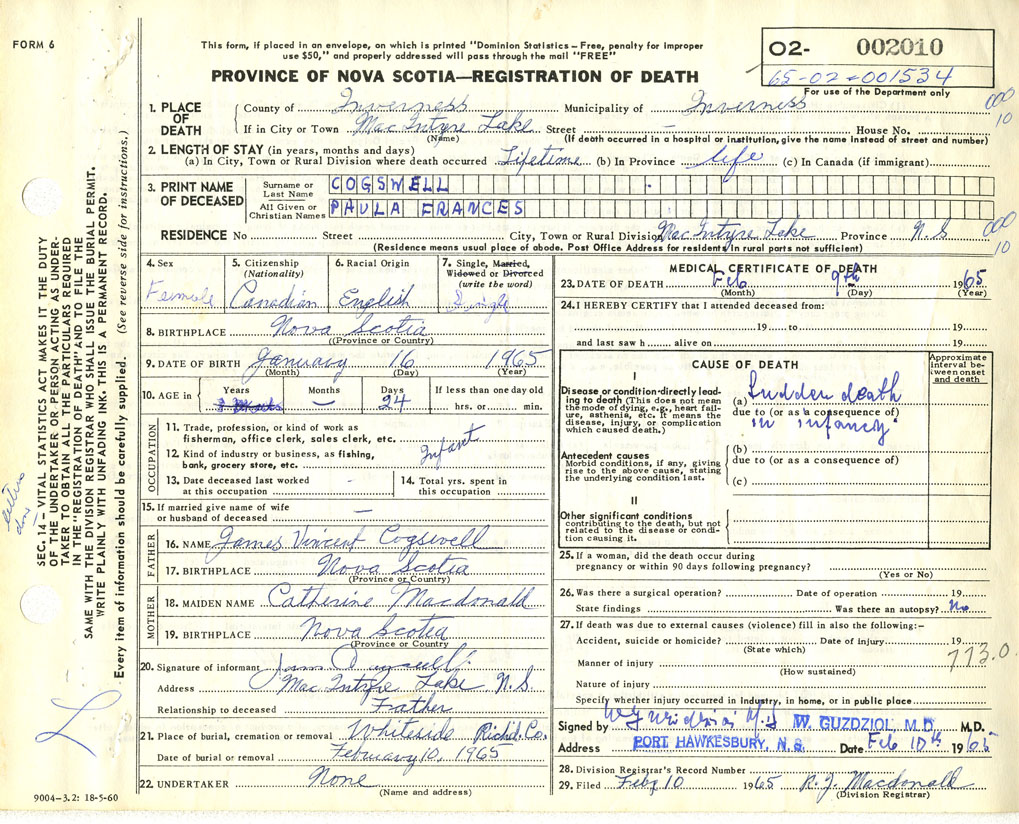 FORM 6
This form, if placed in an envelope, on which is printed "Dominion Statistics – Free, penalty for improper
use $50," and properly addressed will pass through the mail "FREE"
PROVINCE OF NOVA SCOTIA—REGISTRATION OF DEATH
O2- 002010
65-02-001534
For use of the Department only
000
10
1. PLACE OF DEATH County of Inverness Municipality of Inverness
If in City or Town MacIntyre Lake Street – House No.
(Name) (If death occurred in a hospital or institution, give the name instead of street and number)
2. LENGTH OF STAY (in years, months and days)
(a) In City, Town or Rural Division where death occurred Lifetime (b) In Province life (c) In Canada (if immigrant)
3. PRINT NAME OF DECEASED
Surname or Last Name COGSWELL
All Given or Christian Names PAULA FRANCES
RESIDENCE No Street City, Town or Rural Division MacIntyre Lake Province N.S
000
10
(Residence means usual place of abode. Post Office Address for residents in rural parts not sufficient)
4. Sex Female
5. Citizenship (Nationality) Canadian
6. Racial Origin English
7. Single, Married, Widowed or Divorced (write the word) Single
8. BIRTHPLACE Nova Scotia
(Province or Country)
9. DATE OF BIRTH January 16 1965
(Month) (Day) (Year)
10. AGE in Years Months – Days 24 If less than one day old
hrs. or min.
OCCUPATION
11. Trade, profession, or kind of work as
fisherman, office clerk, sales clerk, etc. Infant
12. Kind of industry or business, as fishing,
bank, grocery store, etc.
13. Date deceased last worked
at this occupation –
14. Total yrs. spent in
this occupation
15. If married give name of wife
or husband of deceased –
FATHER
16. NAME James Vincent Cogswell
17. BIRTHPLACE Nova Scotia
(Province or Country)
MOTHER
18. MAIDEN NAME Catherine Macdonald
19. BIRTHPLACE Nova Scotia
(Province or Country)
20. Signature of informant
Address MacIntyre Lake N.S.
Relationship to deceased Father
21. Place of burial, cremation or removal Whiteside Richd. Co.
Date of burial or removal February 10, 1965
22. UNDERTAKER None
(Name and address)
9004-3.2: 18-5-60
MEDICAL CERTIFICATE OF DEATH
23. DATE OF DEATH Feb 9th 1965
(Month) (Day) (Year)
24. I HEREBY CERTIFY that I attended deceased from:
19 to 19
and last saw h alive on 19
CAUSE OF DEATH
Approximate interval between onset and death
I
Disease or condition directly leading to death (This does not mean
the mode of dying, e.g., heart failure, asthenia, etc. It means the
disease, injury, or complication
which caused death.)
(a) Sudden death
due to (or as a consequence of)
in infancy
Antecedent causes
Morbid conditions, if any, giving
rise to the above cause, stating
the underlying condition last.
(b)
due to (or as a consequence of)
(c)
II
Other significant conditions
contributing to the death, but not
related to the disease or condition causing it.
25. If a woman, did the death occur during
pregnancy or within 90 days following pregnancy?
(Yes or No)
26. Was there a surgical operation? Date of operation 19
State findings Was there an autopsy? No
27. If death was due to external causes (violence) fill in also the following:–
Accident, suicide or homicide? Date of injury 19
(State which)
773.0
Manner of injury
(How sustained)
Nature of injury
Specify whether injury occurred in industry, in home, or in public place
Signed by W. GUZDZIOL, M.D. M.D.
Address PORT HAWKESBURY, N.S. Date Feb 10th 1965
28. Division Registrar's Record Number
29. Filed Feby 10 1965 R. J. Macdonald
(Division Registrar)
SEC. 14 – VITAL STATISTICS ACT MAKES IT THE DUTY
OF THE UNDERTAKER OR PERSON ACTING AS UNDER-
TAKER TO OBTAIN ALL THE PARTICULARS REQUIRED
IN THE "REGISTRATION OF DEATH" AND TO FILE THE
SAME WITH THE DIVISION REGISTRAR WHO SHALL ISSUE THE BURIAL PERMIT.
WRITE PLAINLY WITH UNFADING INK. THIS IS A PERMANENT RECORD.
Every item of information should be carefully supplied. (See reverse side for instructions.)